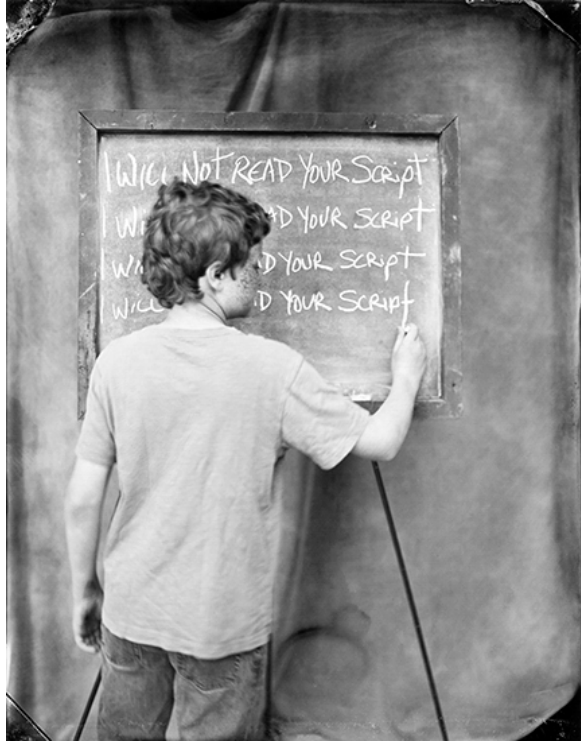 I WILL NOT READ YOUR SCRIPT
I YOUR SCRIPT
I YOUR SCRIPT
I WILL YOUR SCRIPT